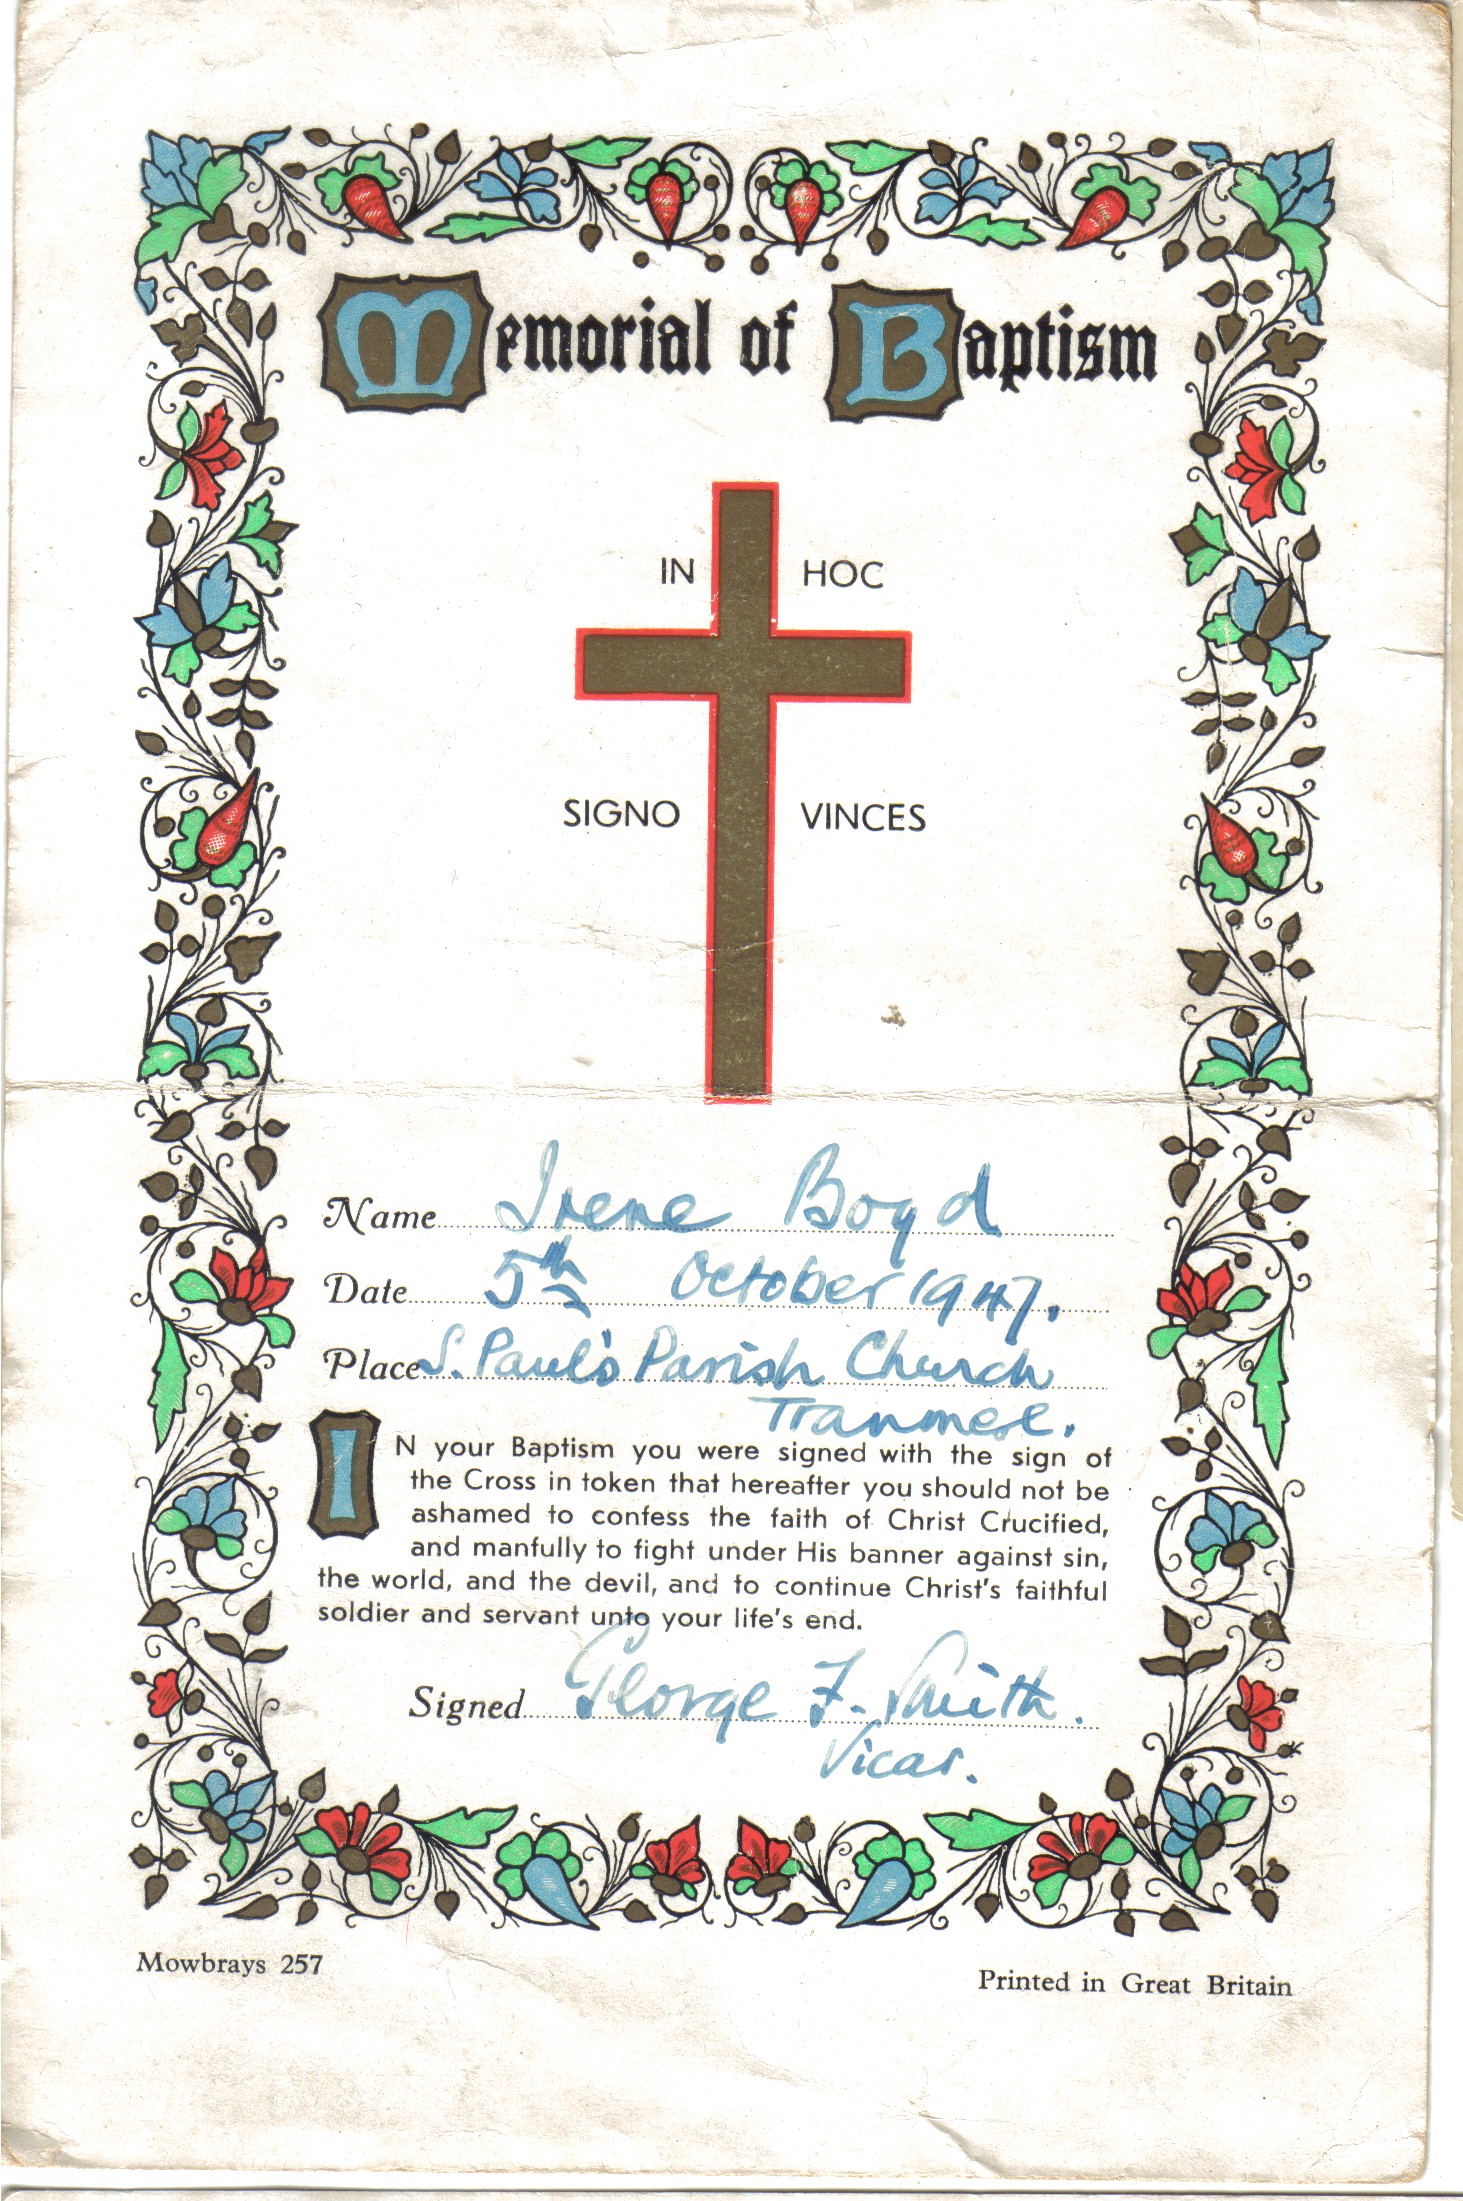 Memorial of Baptism
IN HOC
SIGNO VINCES
Name Irene Boyd
Date 5th October 1947.
Place S. Paul's Parish Church
Tranmere.
IN your Baptism you were signed with the sign of
the Cross in token that hereafter you should not be
ashamed to confess the faith of Christ Crucified,
and manfully to fight under His banner against sin,
the world, and the devil, and to continue Christ's faithful
soldier and servant unto your life's end.
Signed George F. Smith.
Vicar.
Mowbrays 257
Printed in Great Britain